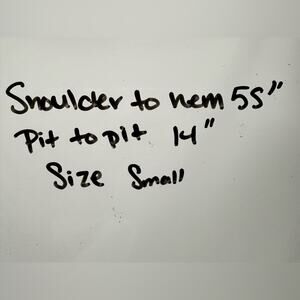 Shoulder to hem 55"
Pit to pit 14"
Size Small